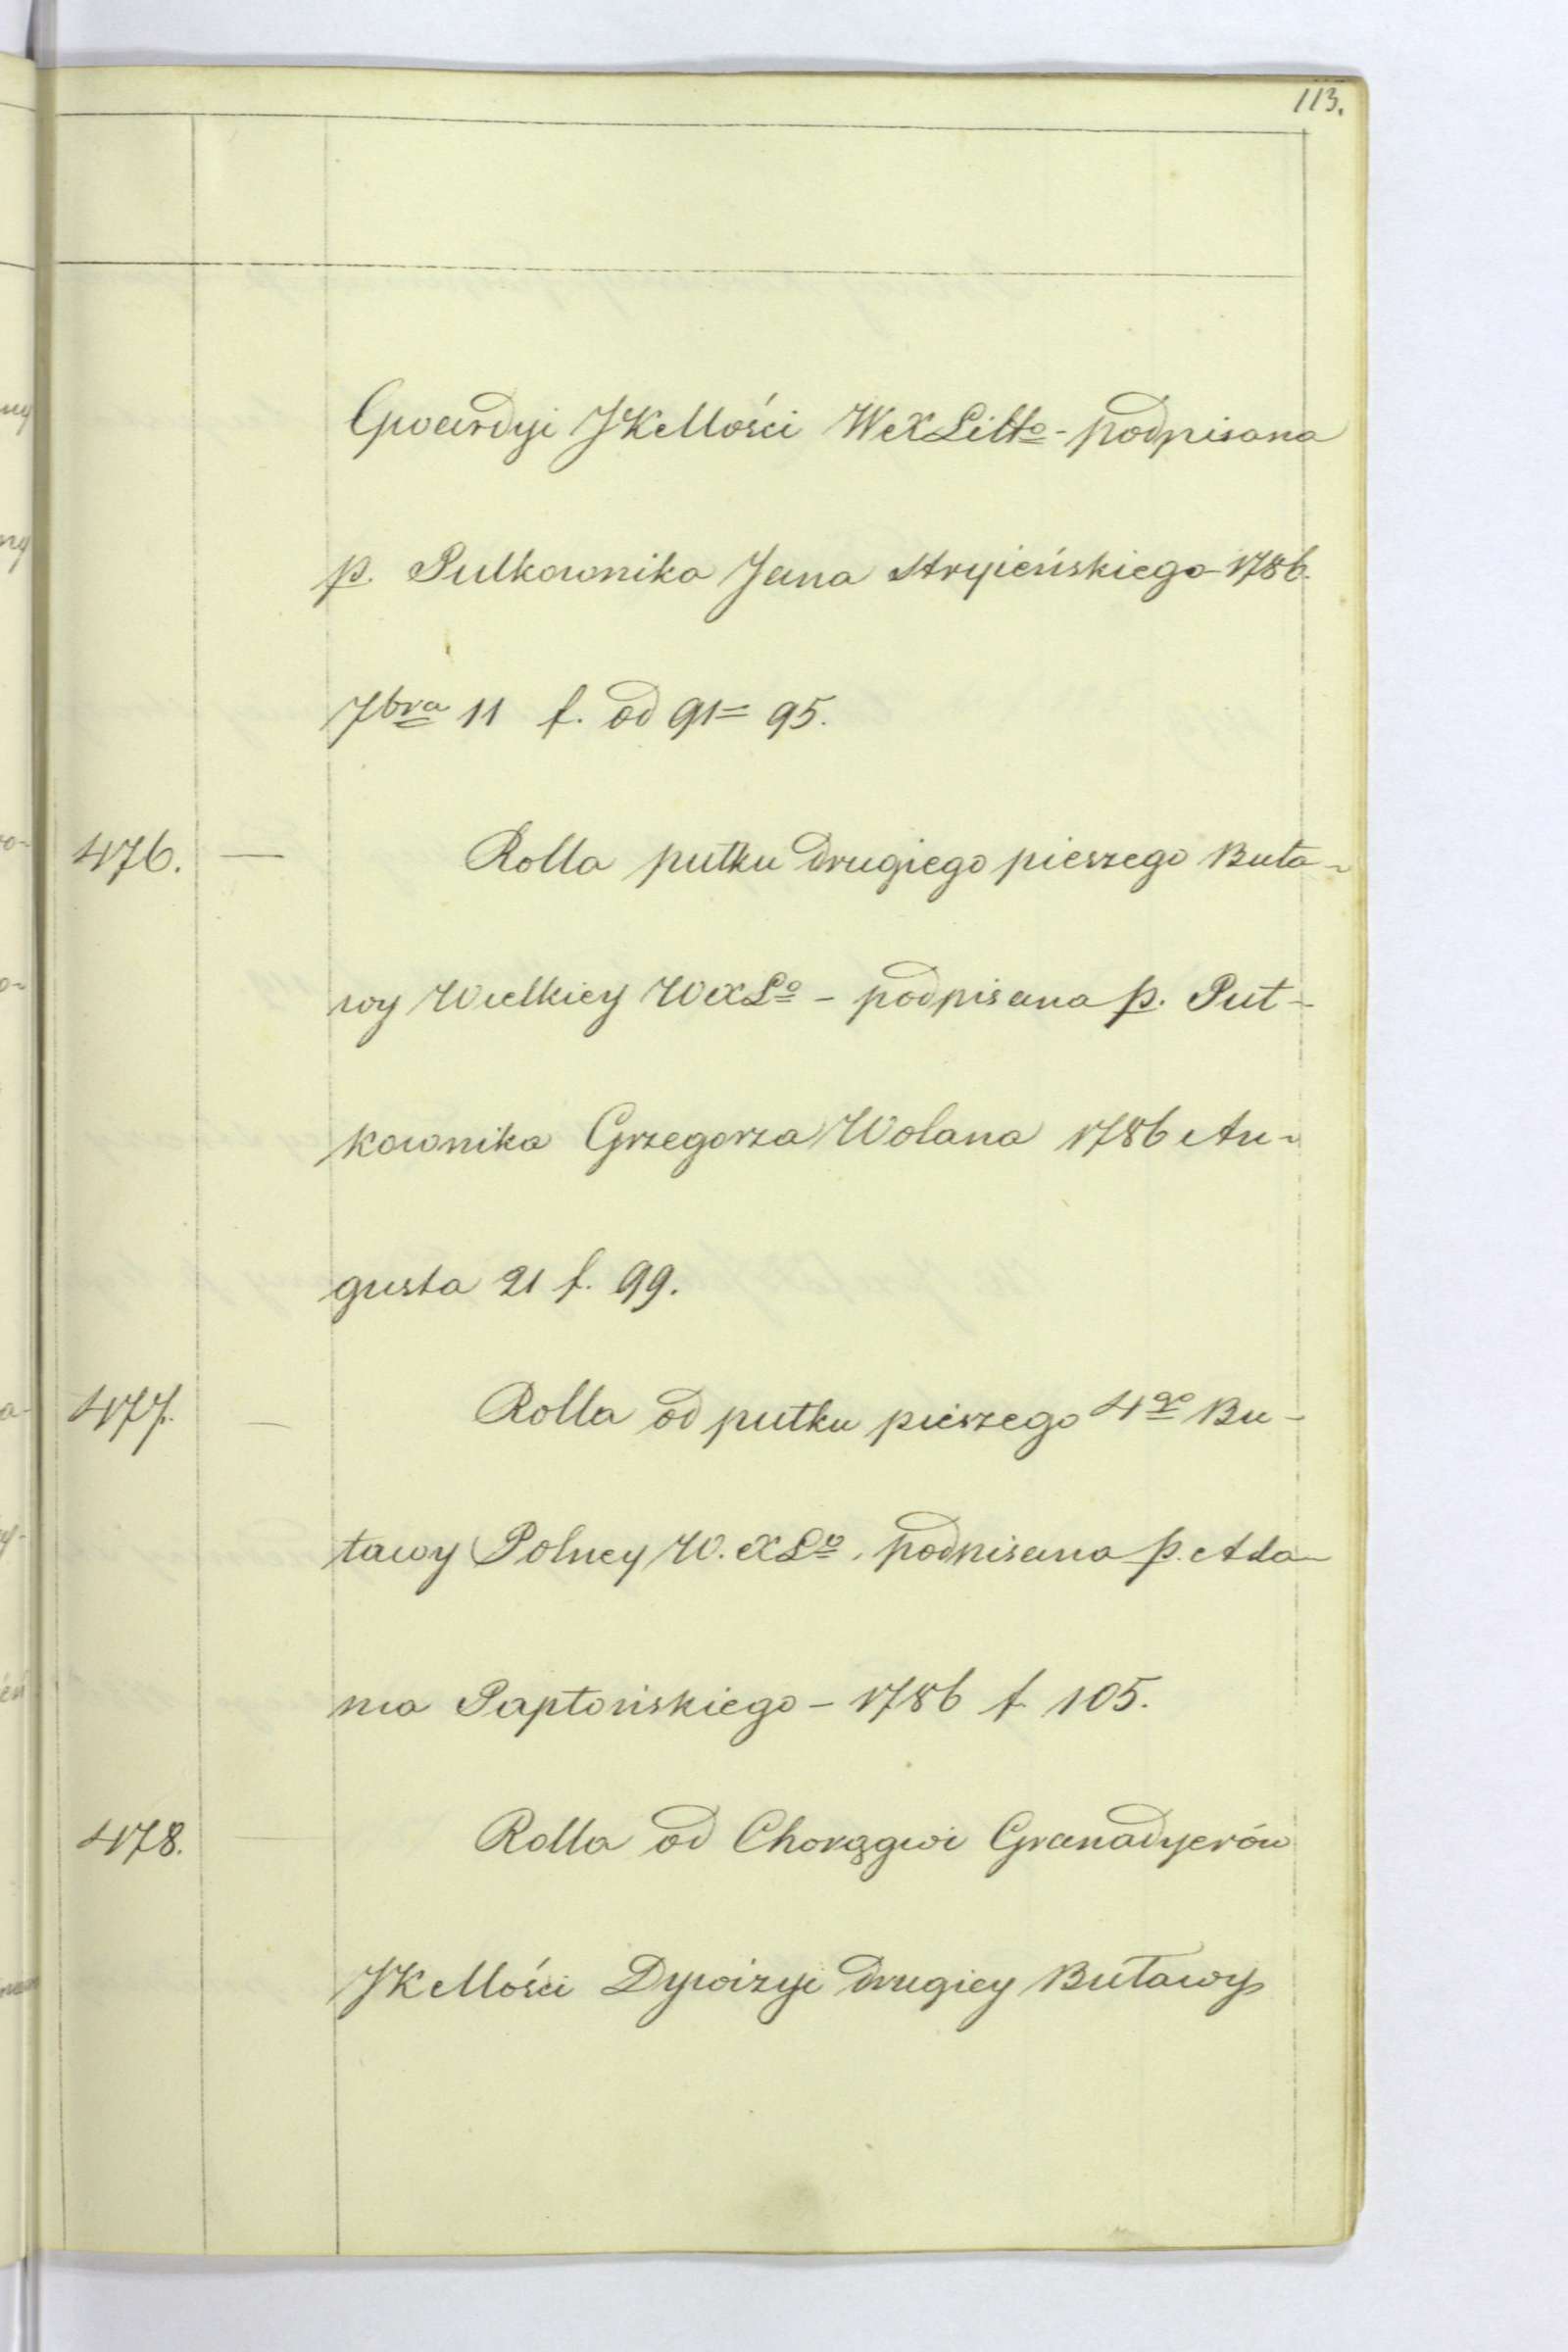 113.
Gwardyi JKMości WXLitto - podpisana
p. Pulkownika Jana Stryieńskiego 1786.
7bra 11 f. od 91 = 95.
476. — Rolla pułku drugiego pieszego Buła-
wy Wielkiey WXLo - podpisana p. Puł-
kownika Grzegorza Wolana 1786 Au-
gusta 21 f. 99.
477. — Rolla od pułku pieszego 4go Bu-
ławy Polney W. XLo. podpisana p. Ada-
ma Papłońskiego - 1786 f 105.
478. — Rolla od Chorągwi Granadyerów
JKMości Dywizyi drugiey Buławy